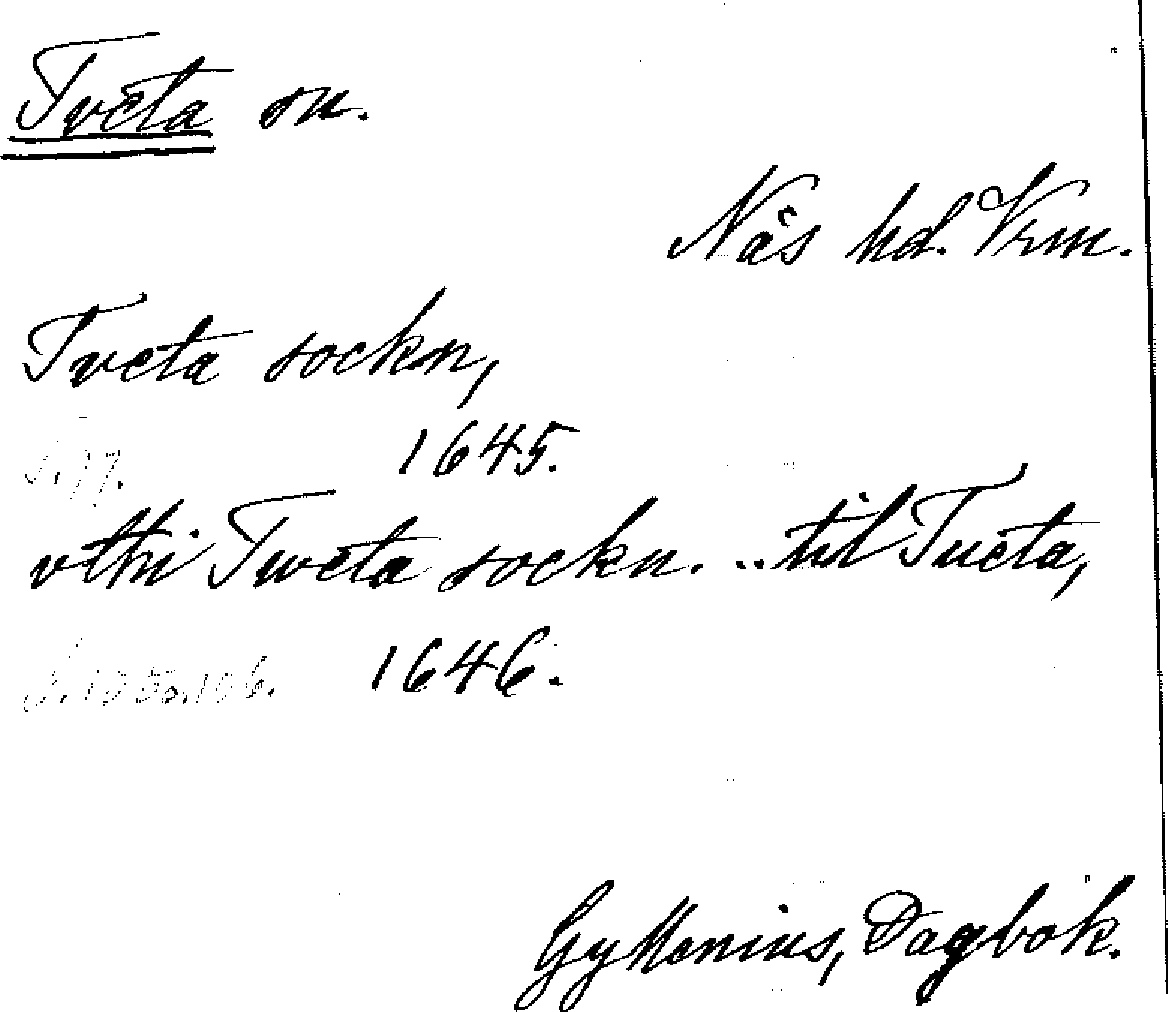 Tveta sn.
Näs hd. Vrm.
Tveta sockn,
S. 77. 1645.
vthi Tweta sockn. .. til Tueta,
1646.
Gyllenius, Dagbok.